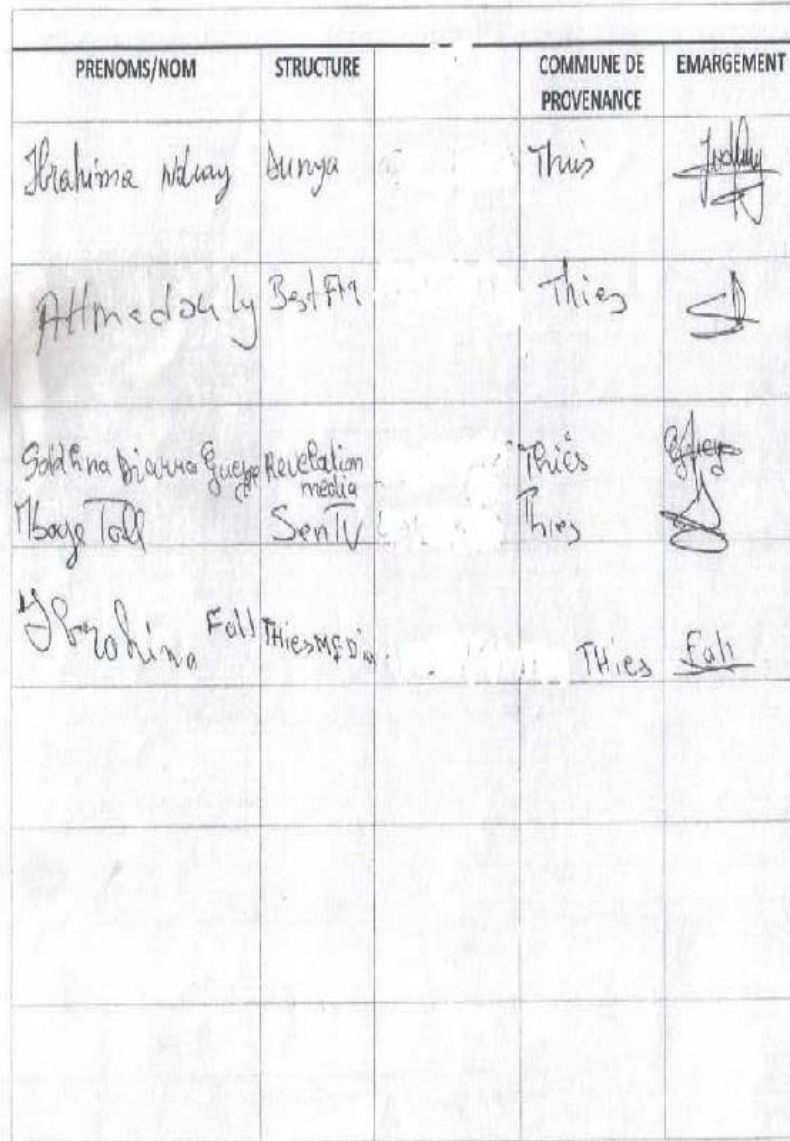 PRENOMS/NOM STRUCTURE COMMUNE DE PROVENANCE EMARGEMENT
Ibrahima Ndiay Dunya Thies
Ahmadou Ly Best FM Thies
Diarra Gueye Revelation media Thiès
Mbaye Tall Sen TV Thies
Ibrahima Fall THies MEDia THies Fall